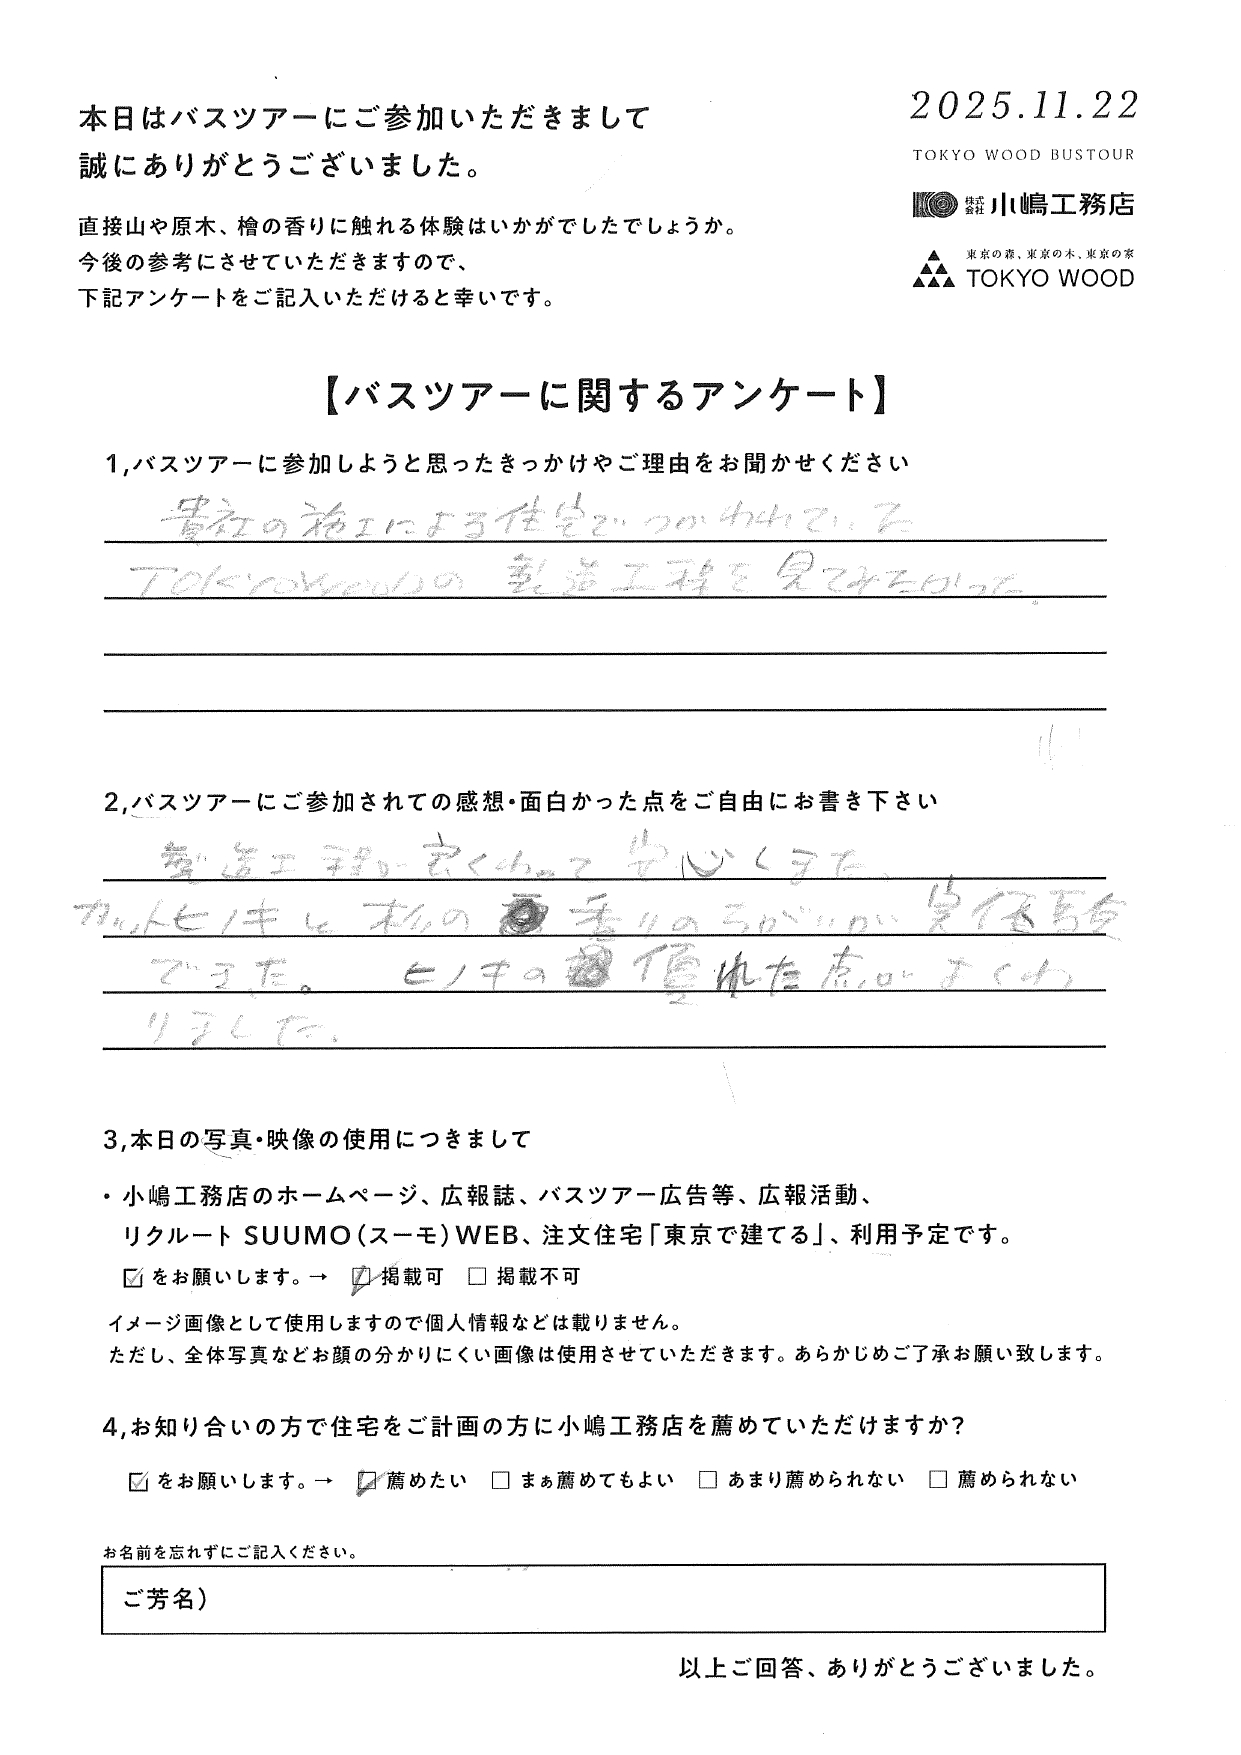 本日はバスツアーにご参加いただきまして
誠にありがとうございました。
2025.11.22
TOKYO WOOD BUSTOUR
株式会社 小嶋工務店
東京の森、東京の木、東京の家
TOKYO WOOD
直接山や原木、檜の香りに触れる体験はいかがでしたでしょうか。
今後の参考にさせていただきますので、
下記アンケートをご記入いただけると幸いです。
【バスツアーに関するアンケート】
1,バスツアーに参加しようと思ったきっかけやご理由をお聞かせください
貴社の施工による住宅でつかわれていた
TOKYOWOODの製造工程を見てみたかった.
2,バスツアーにご参加されての感想・面白かった点をご自由にお書き下さい
製造工程が良くわかって安心しました。
カットヒノキと杉の香りのちがいが実体験
できた。ヒノキの優れた点がよくわ
りました.
3,本日の写真・映像の使用につきまして
・小嶋工務店のホームページ、広報誌、バスツアー広告等、広報活動、
リクルート SUUMO(スーモ)WEB、注文住宅「東京で建てる」、利用予定です。
☑をお願いします。→ ☑掲載可 □掲載不可
イメージ画像として使用しますので個人情報などは載りません。
ただし、全体写真などお顔の分かりにくい画像は使用させていただきます。あらかじめご了承お願い致します。
4,お知り合いの方で住宅をご計画の方に小嶋工務店を薦めていただけますか?
☑をお願いします。→ ☑薦めたい □まぁ薦めてもよい □あまり薦められない □薦められない
お名前を忘れずにご記入ください。
ご芳名)
以上ご回答、ありがとうございました。